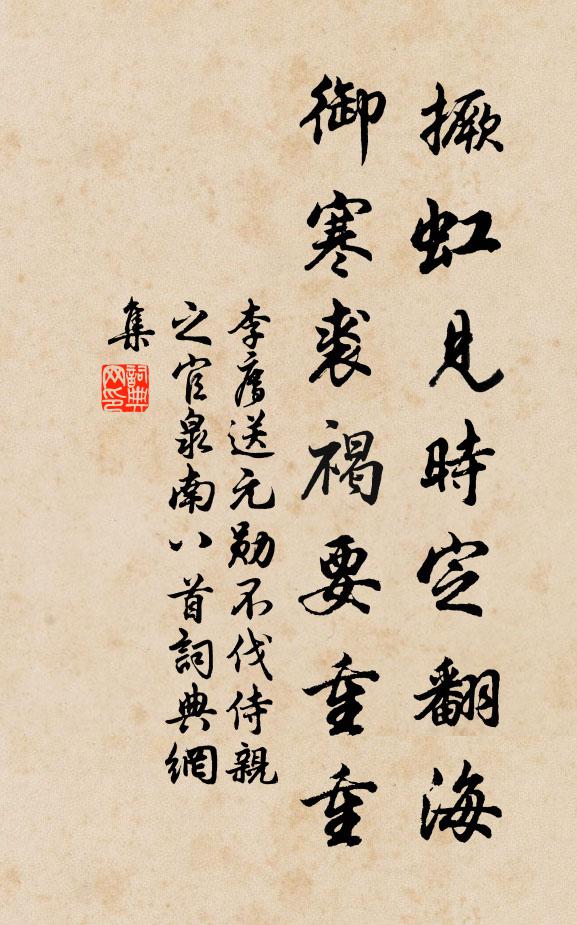 撅虹見時定翻海
御寒裘褐要重重
李廌送元勛不伐侍親
之官泉南八首詞典網
集
詞典
网印